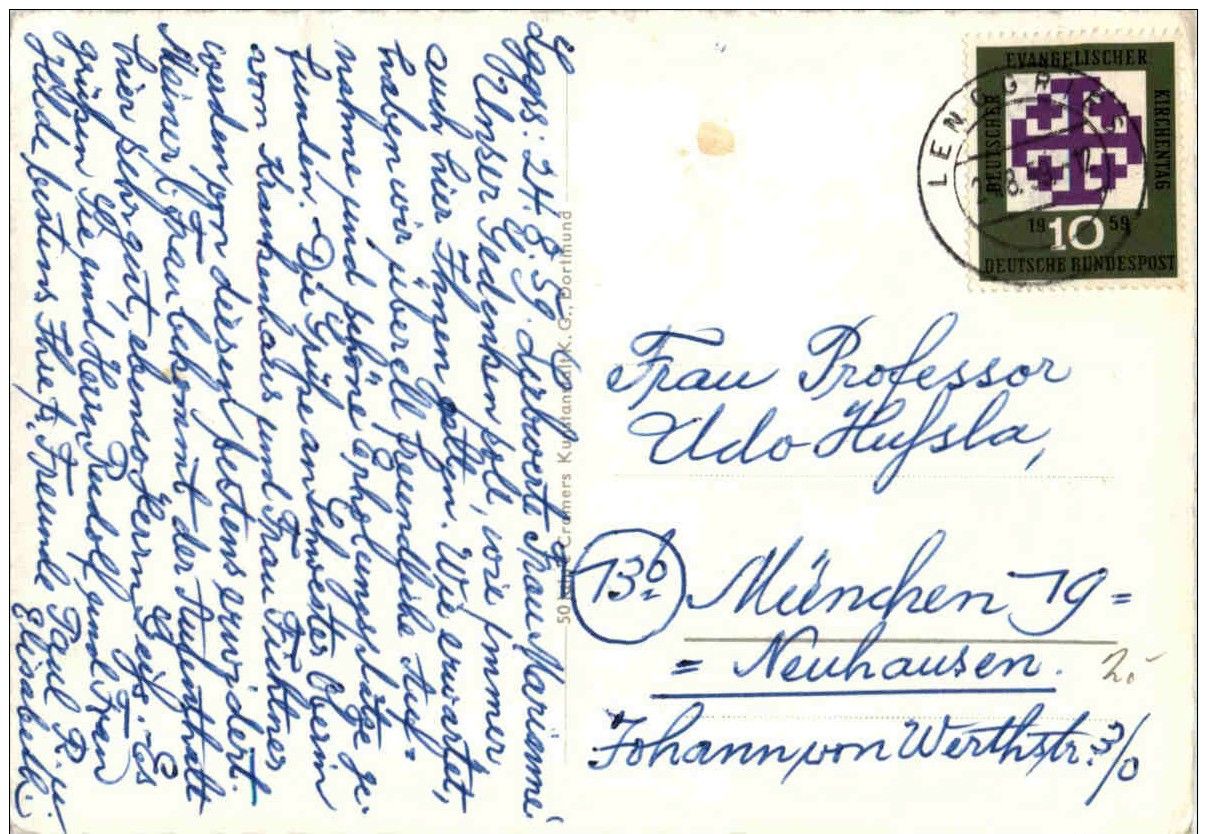 Lggrs: 24. 8. 59. Liebwerte Frau Marianne!
Unser Gedenken soll, wie immer
auch hier Ihnen gelten. Wie erwartet,
haben wir überall freundliche Auf=
nahme und schöne Erholungsplätze ge-
funden. Die Grüße an Schwester Oberin
vom Krankenhaus und Frau Fichtner
werden von diesen bestens erwidert.
Meiner l. Frau bekommt der Aufenthalt
hier sehr gut, ebenso Herrn Geiß. Es
grüßen Sie und Herrn Rudolf und Frau
Hilde bestens Ihre Freunde Paul R. u.
Elisabeth.
50 Jahre Cramers Kunstanstalt K. G., Dortmund
LENGGRIES
8.59
DEUTSCHER
EVANGELISCHER
KIRCHENTAG
19 59
10
DEUTSCHE BUNDESPOST
Frau Professor
Udo Hußla,
13b
München 19=
= Neuhausen.
Johann von Werthstr. 3/0
2.-